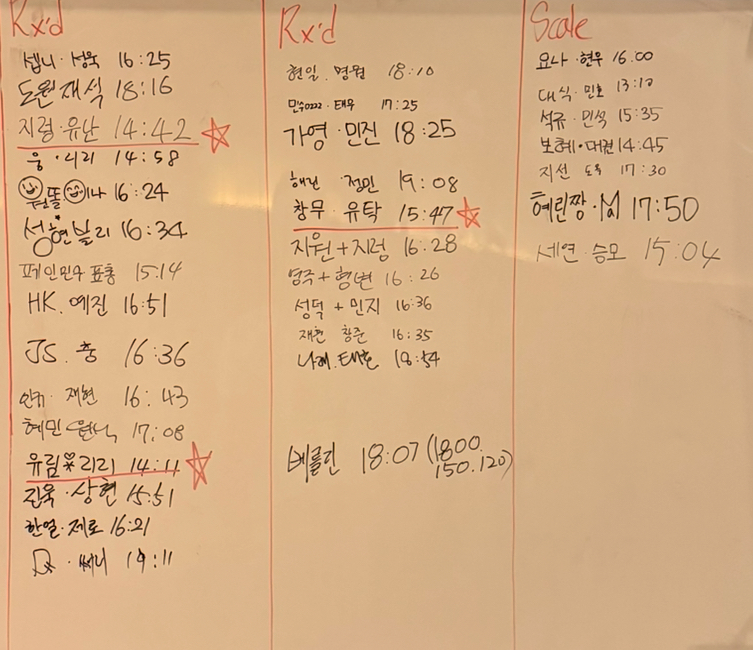 Rx'd
셉니·성욱 16:25
도원재식 18:16
지렁·유난 14:42
웅·리리 14:58
이나 16:24
성현블리 16:34
페인민수 표통 15:14
HK.예진 16:51
JS.충 16:36
인규·재현 16:43
혜민 원식 17:08
유림 리리 14:11
진욱·상현 15:51
한얼·제로 16:21
써니 19:11
Rx'd
현일.명원 18:10
민수0222·태우 17:25
가영·민진 18:25
해린 정민 19:08
창무·유탁 15:47
지원+지렁 16:28
명주+형변 16:26
성덕+민지 16:36
재현 창준 16:35
18:54
베를린 18:07(1800.
150.120)
Scale
요나·현우 16.00
대식·민호 13:10
석규·민석 15:35
보혜·대권 14:45
지선 도욱 17:30
혜린짱·M 17:50
세연·승모 15:04